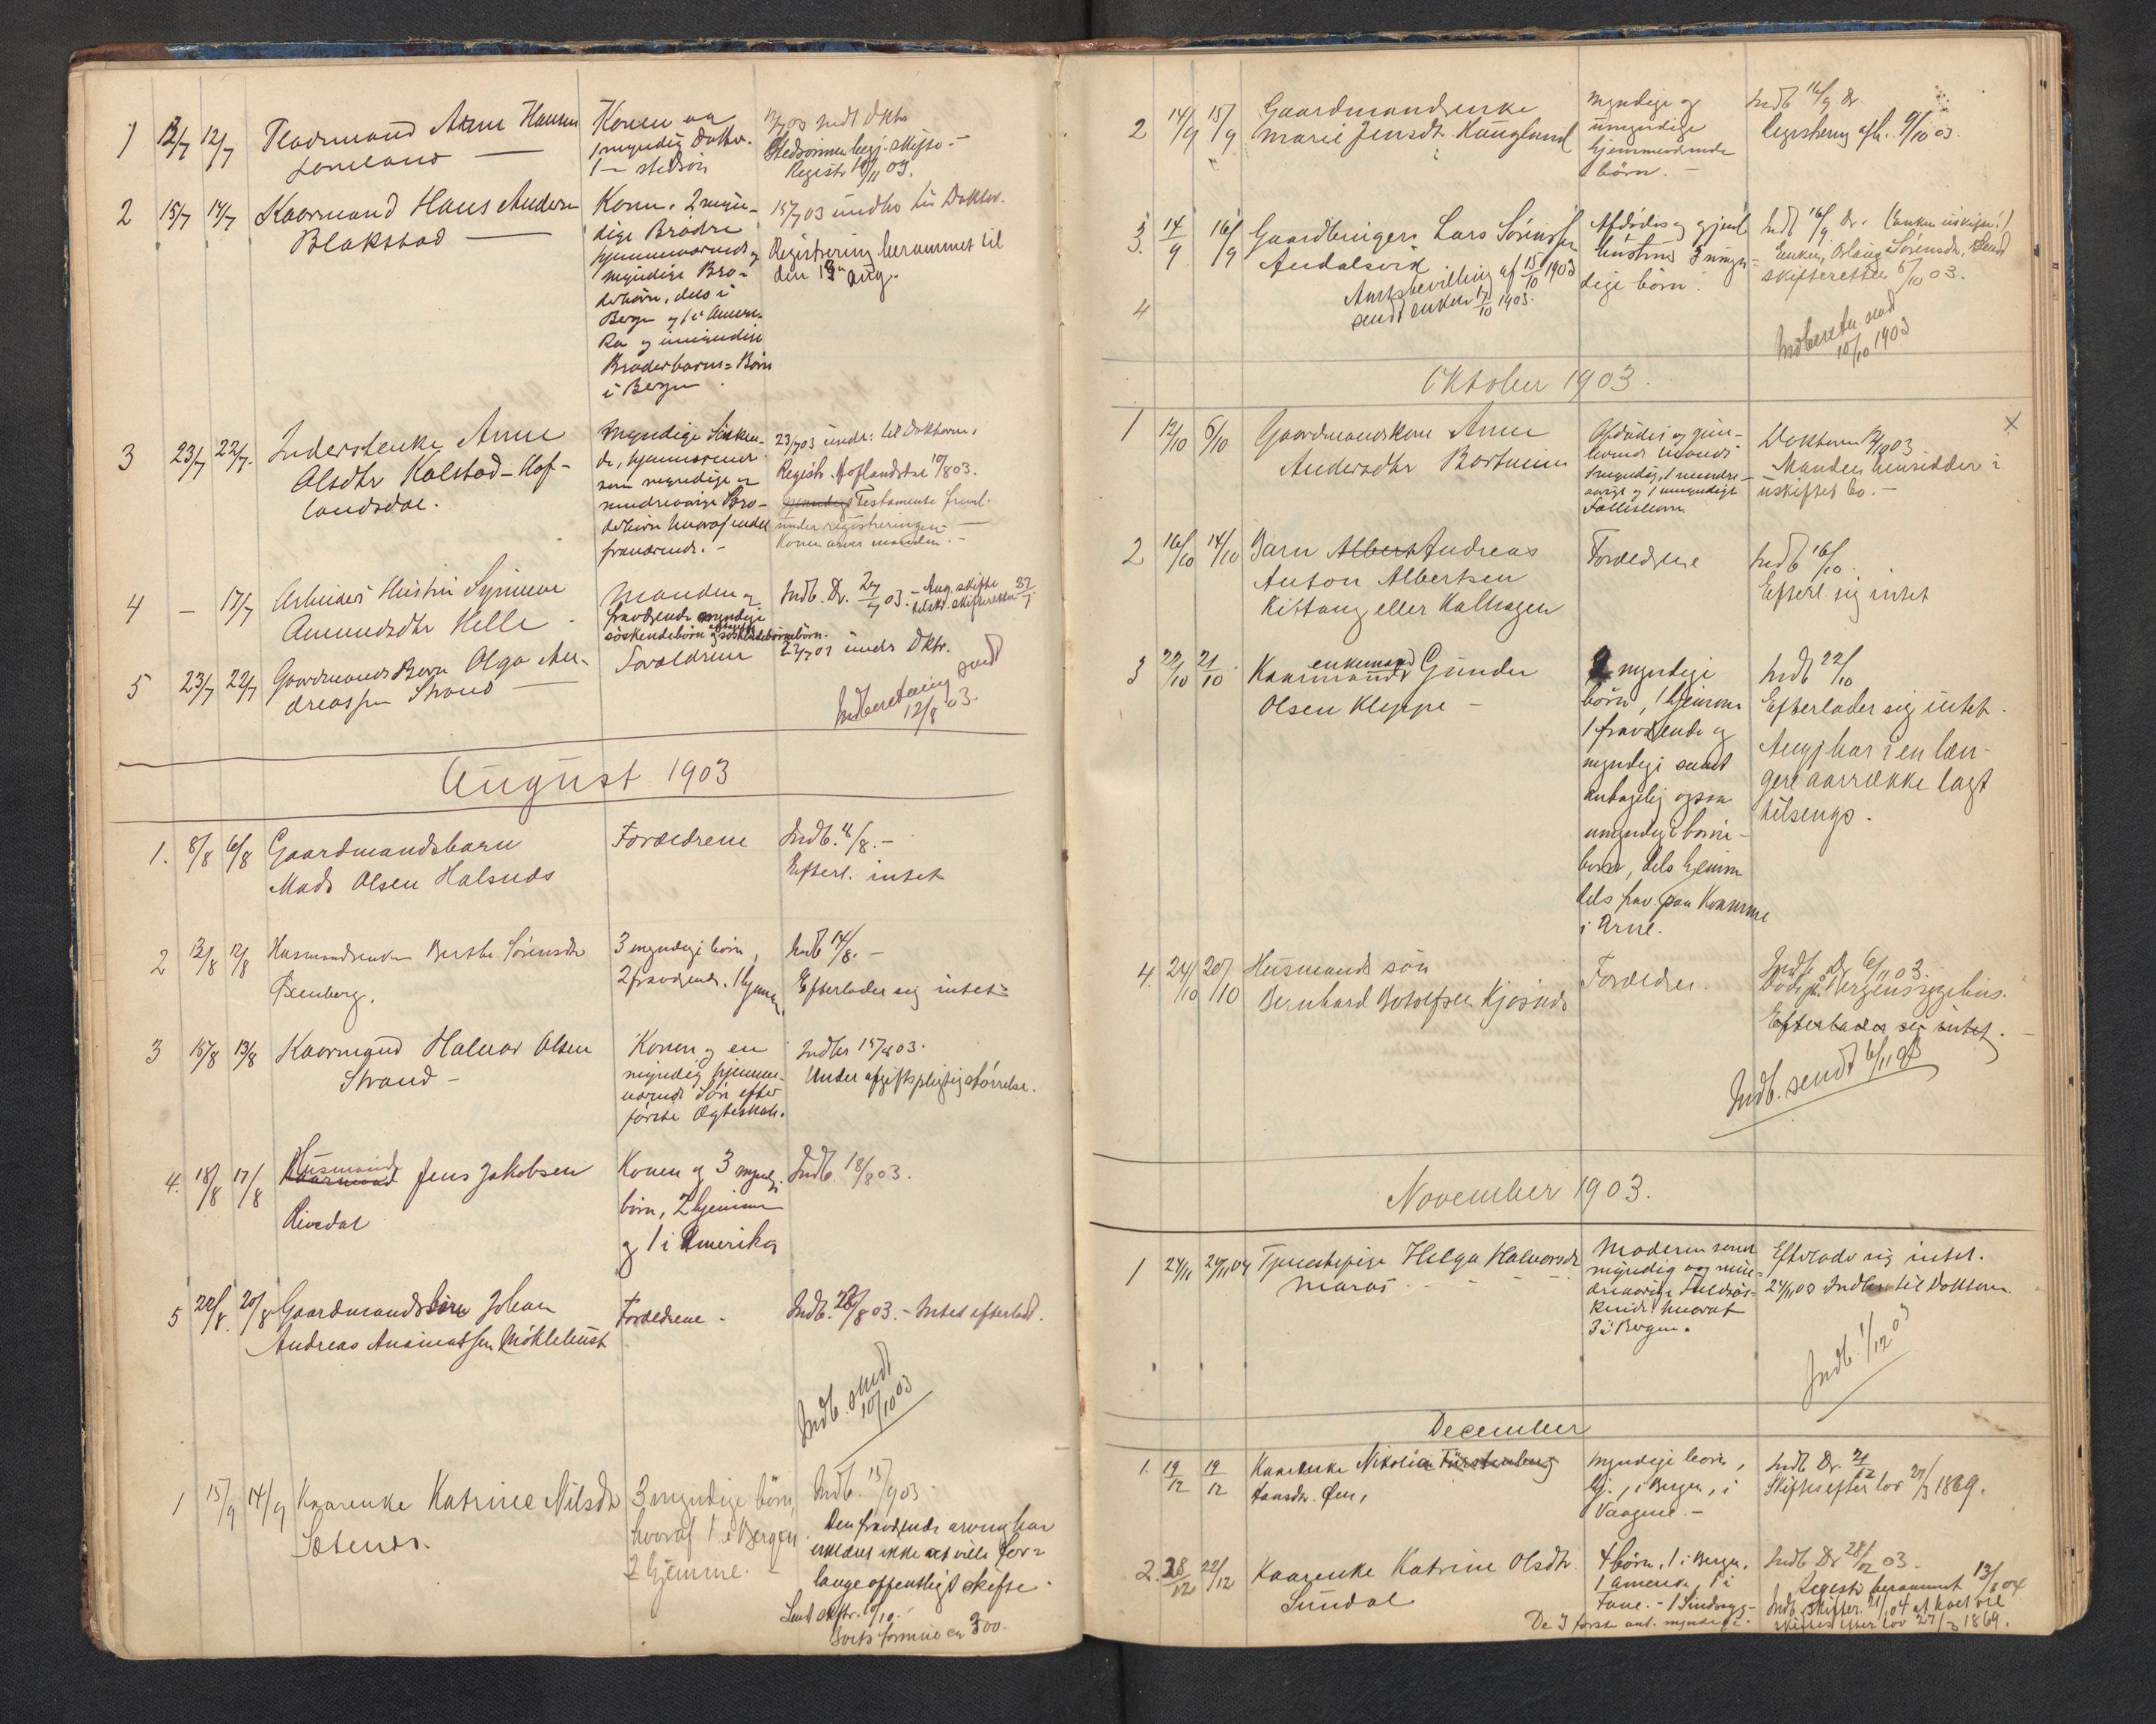 1 12/7 12/7 Anne Hansen Konen og 12/7 03 indb Dktr
1 myndig Datter.
1 — stedsön Registr 10/11 03.
2 15/7 14/7 Kaarmand Hans Andersen Konen, 2 myn- 15/7 03 indb. til Doktor.
Blakstad — dige Brödre
hjemmeværende og Registrering berammet til
myndige Bro- den 19 Aug.
derbörn, dels i
Bergen og i Ameri-
ka og umyndige
Broderbarns-Börn
i Bergen.
3 23/7 22/7. Inderstenke Anne Myndige Sösken- 23/7 03 indb: til Doktoren.
Olsdtr Kalstad - Hof- de, hjemmeværende Registr. Hoflandsdal 10/8 03.
landsdal. samt myndige og
mindreaarige Bro- Testamente freml.
derbörn hvoraf endel under registreringen —
fraværende. — Konen arver manden. —
4 — 17/7 Arbeider Hustru Synneve Manden og Indb. Dr. 27/7 03. — Aug. skifte
Amundsdtr Helle fraværende myndige tilst. skifteretten 27/7
söskendebörn og söskendebörnsbörn.
5 23/7 22/7 Gaardmands Barn Olga An- Forældrene 23/7 03 indb Dktr.
dreassen Strand — Indberetning sendt
12/8 03.
August 1903
1. 8/8 6/8 Gaardmandsbarn Forældrene Indb. 8/8. —
Mads Olsen Halsnæs Efterl. intet
2 13/8 12/8 Husmandsenken Berthe Sörensdtr 3 myndige börn, Indb 14/8. —
Öenberg. 2 fraværende. 1 hjemme Efterlader sig intet
3 15/8 13/8 Kaarmand Halvor Olsen Konen og en Indber 15/8 03.
Strand — myndig hjemme- Under afgiftspligtig størrelse.
værende Sön efter
förste Ægteskab.
4. 18/8 17/8 Husmand Jens Jakobsen Konen og 3 mynd. Indb. 18/8 03.
Rivedal börn, 2 hjemme
og 1 i Amerika
5 22/8. 20/8 Gaardmandsbarn Johan Forældrene — Indb. 22/8 03. — Intet efterladt.
Andreas Mökleböst
Indb. sendt
10/10 03
1 15/9 14/9 Kaarenke Katrine Nilsdtr 3 myndige börn Indb. 15/9 03.
Sætenes. hvoraf 1 i Bergen Den fraværende arving har
2 hjemme. — erklæret ikke at ville for-
lange offentligt skifte.
Sendt skftr. 10/10.
Boets formue ca 300.
2 14/9 15/9 Gaardmandsenke Myndige og Indb 16/9 Dr.
Marie Jensdtr. Haugland umyndige Registering afh. 9/10 03.
hjemmeværende
börn. —
3. 14/9 16/9 Gaardbruger Lars Sörensen Afdödes og gjenl. Indb 16/9 Dr. (enken i uskifte!)
Andalsvik hustrus 3 umyn- Enken, Sörensdtr, sendt
Amtsbevilling af 15/10 1903 dige börn. skifteretten 6/10 03.
sendt enken 17/10 1903.
4 Indberetn. sendt
10/10 1903
Oktober 1903.
1 12/10 6/10 Gaardmandskone Anne Afdödes og gjen- Doktoren 12/10 03 X
Andersdtr Bortheim levende mands — Manden hensidder i
1 myndig, 1 mindre- uskiftet bo. —
aarige og 1 umyndige
Fællesbarn
2 16/10 14/10 Barn Albert Andreas Forældrene Indb 16/10.
Anton Albertsen Efterl. sig intet
Kittang eller Kalhagen
3 22/10 21/10 Kaarmand enkemand Gunder 2 myndige Indb 22/10
Olsen Kleppe — börn, 1 hjemme Efterlader sig intet.
1 fraværende og Angj har i en læn-
myndige samt gere aarrække lagt
antagelig ogsaa tilsengs.
umyndige börne-
börn, dels hjemme
dels frav. paa Hamme
i Arne.
4. 24/10 20/10 Husmands sön Forældre. Indb Dr 6/11 03.
Bernhard Botolfsen Kjösnæs Död på Bergens sygehus.
Efterlader sig intet. —
Indb. sendt 6/11 03
November 1903.
1 24/11 20/11 Tjenestepige Helga Halvorsdtr Moderen samt Efterlader sig intet.
Maraas myndig og min- 24/11 03 Indber til Doktoren.
dreaarige Fuldsös-
kende hvoraf
3 i Bergen.
Indb. 1/12 03
December
1. 19/12 19/12 Kaarenke Nikolia Fürstenberg Myndige börn, Indb Dr. 21/12
Hansdtr. Öen, hj., i Bergen, i Skiftes efter lov 27/3 1869.
Vaagene. —
2. 28/12 22/12 Kaarenke Katrine Olsdtr. 4 börn, 1 i Bergen, Indb Dr 28/12 03.
Sundal 1 Amerika, 1 i Registr berammet 13/1 04
Fane. — 1
De 3 förste ant. myndige. skiftes efter lov 27/3 1869.